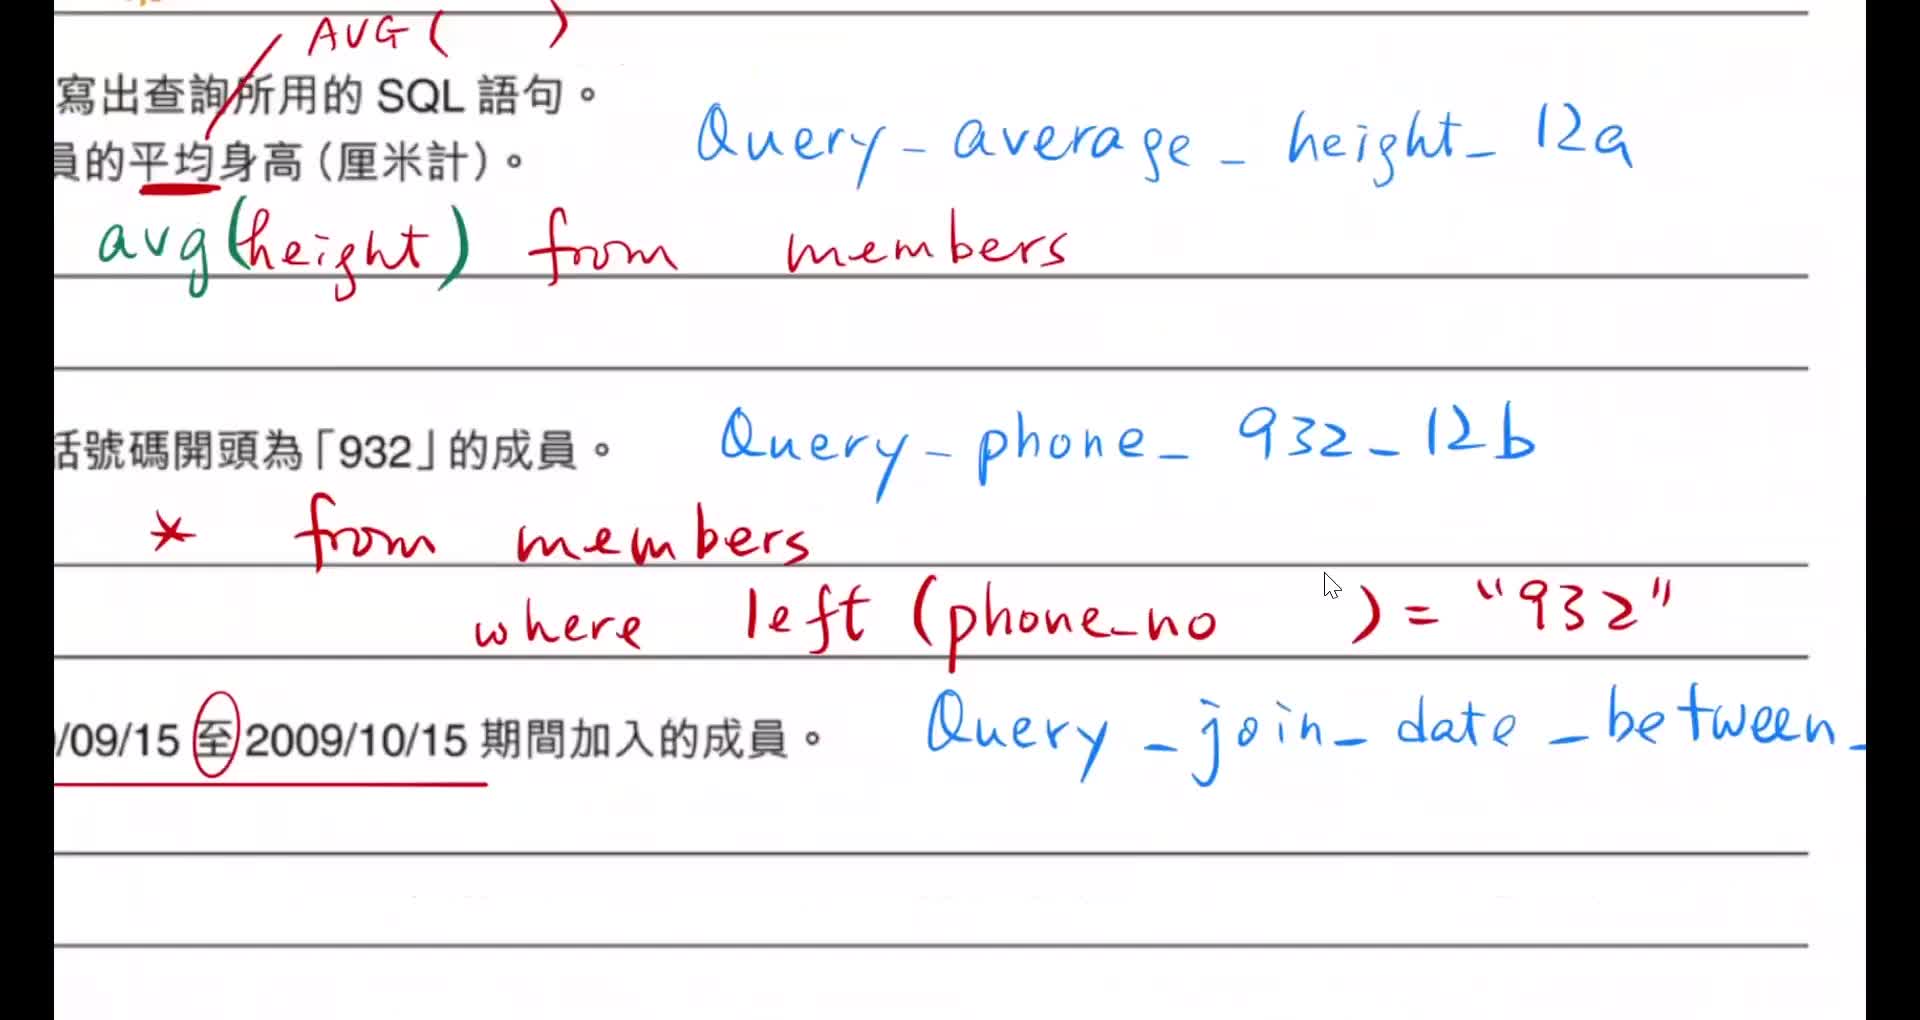 AVG( )
寫出查詢所用的 SQL 語句。
員的平均身高（厘米計）。
Query_average_height_12a
avg(height) from members
話號碼開頭為「932」的成員。
Query_phone_932_12b
* from members
where left (phone_no ) = "932"
/09/15 至 2009/10/15 期間加入的成員。
Query_join_date_between_